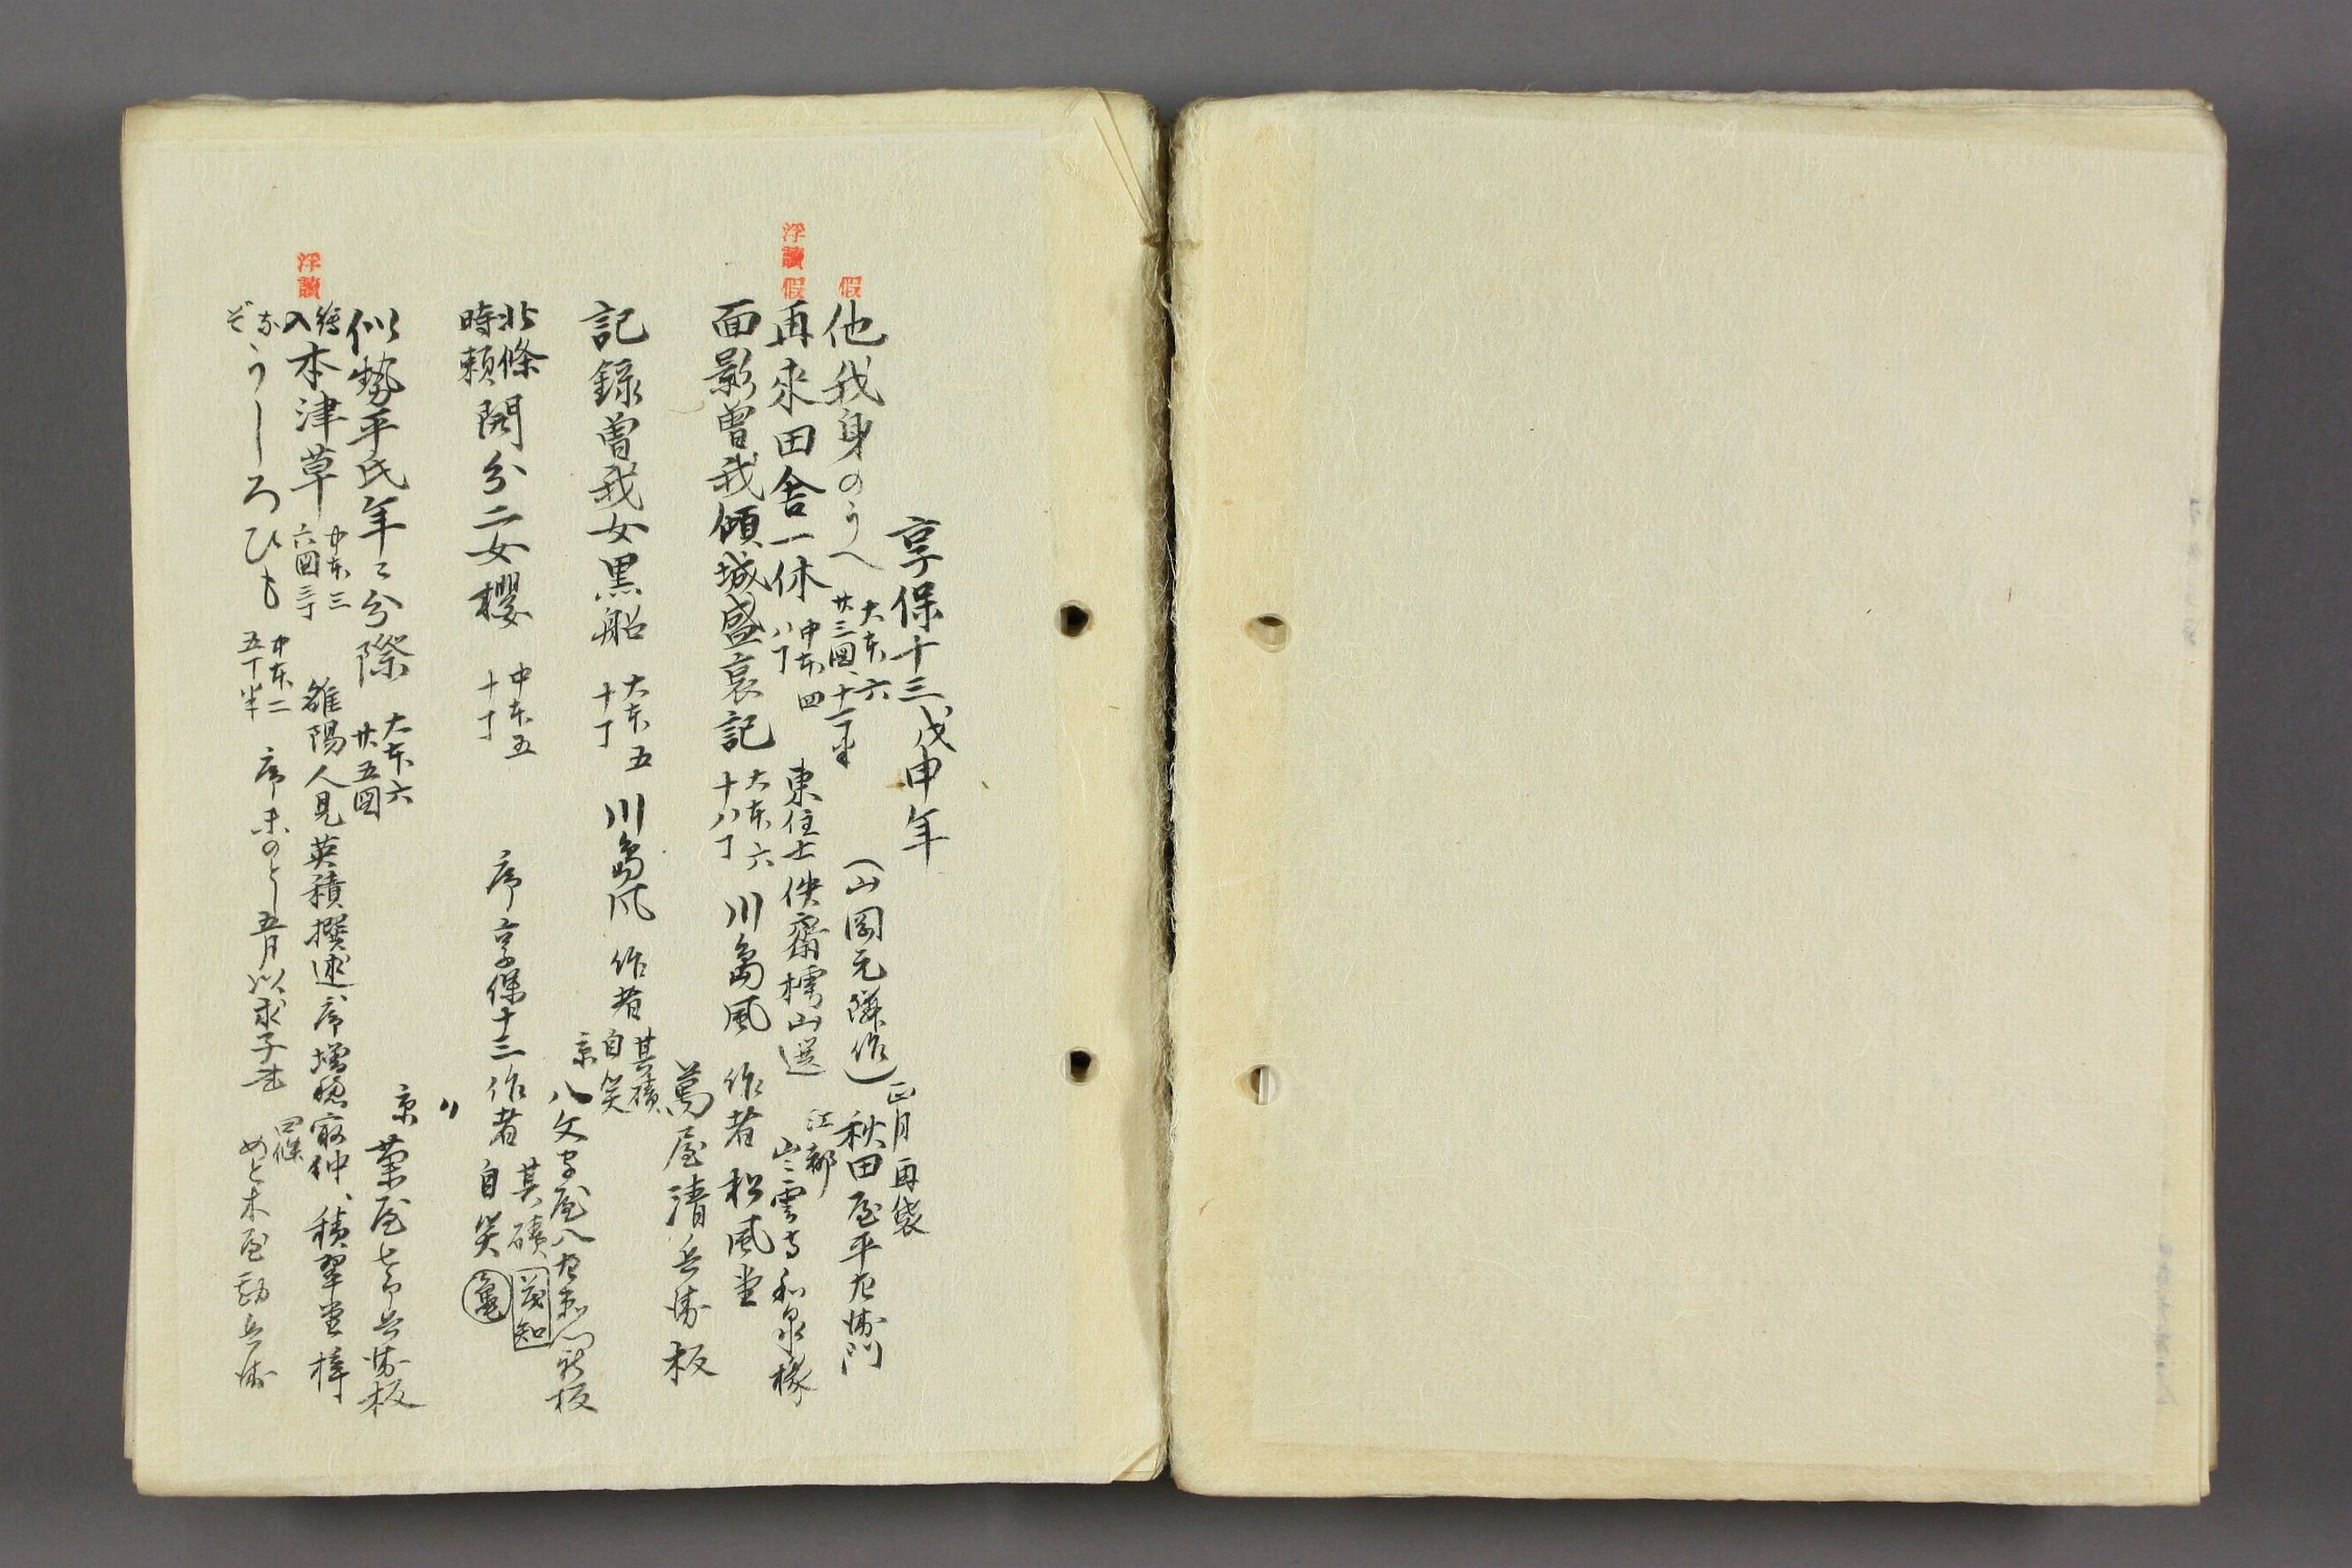 享保十三戊申年
假
他我身のうへ 大本六 廿三図、十一丁半 (山岡元隣作) 正月再版 秋田屋平左衛門
浮讀假
再来田舎一休 中本四 八丁 東住士佚齋樗山選 江都 出雲寺和泉掾
面影曽我傾城盛衰記 大本六 十八丁 川島風 作者松風堂
萬屋清兵衛板
記録曽我女黒船 大本五 十丁 川島風 作者 其磧 自笑
京 八文字屋八左衛門新板
北條時頼開分二女櫻 中本五 十丁 序享保十三 作者 其磧 自笑
〃
似勢平氏年々分際 大本六 廿五図 京 菊屋七郎兵衛板
浮讀
繪入本津草 中本三 六図三丁 雒陽人見英積撰述、序増穂最仲、積翠堂梓
なぞうしろひも 中本二 五丁半 序未のとし五月以求子述 四條 めと木屋勘兵衛